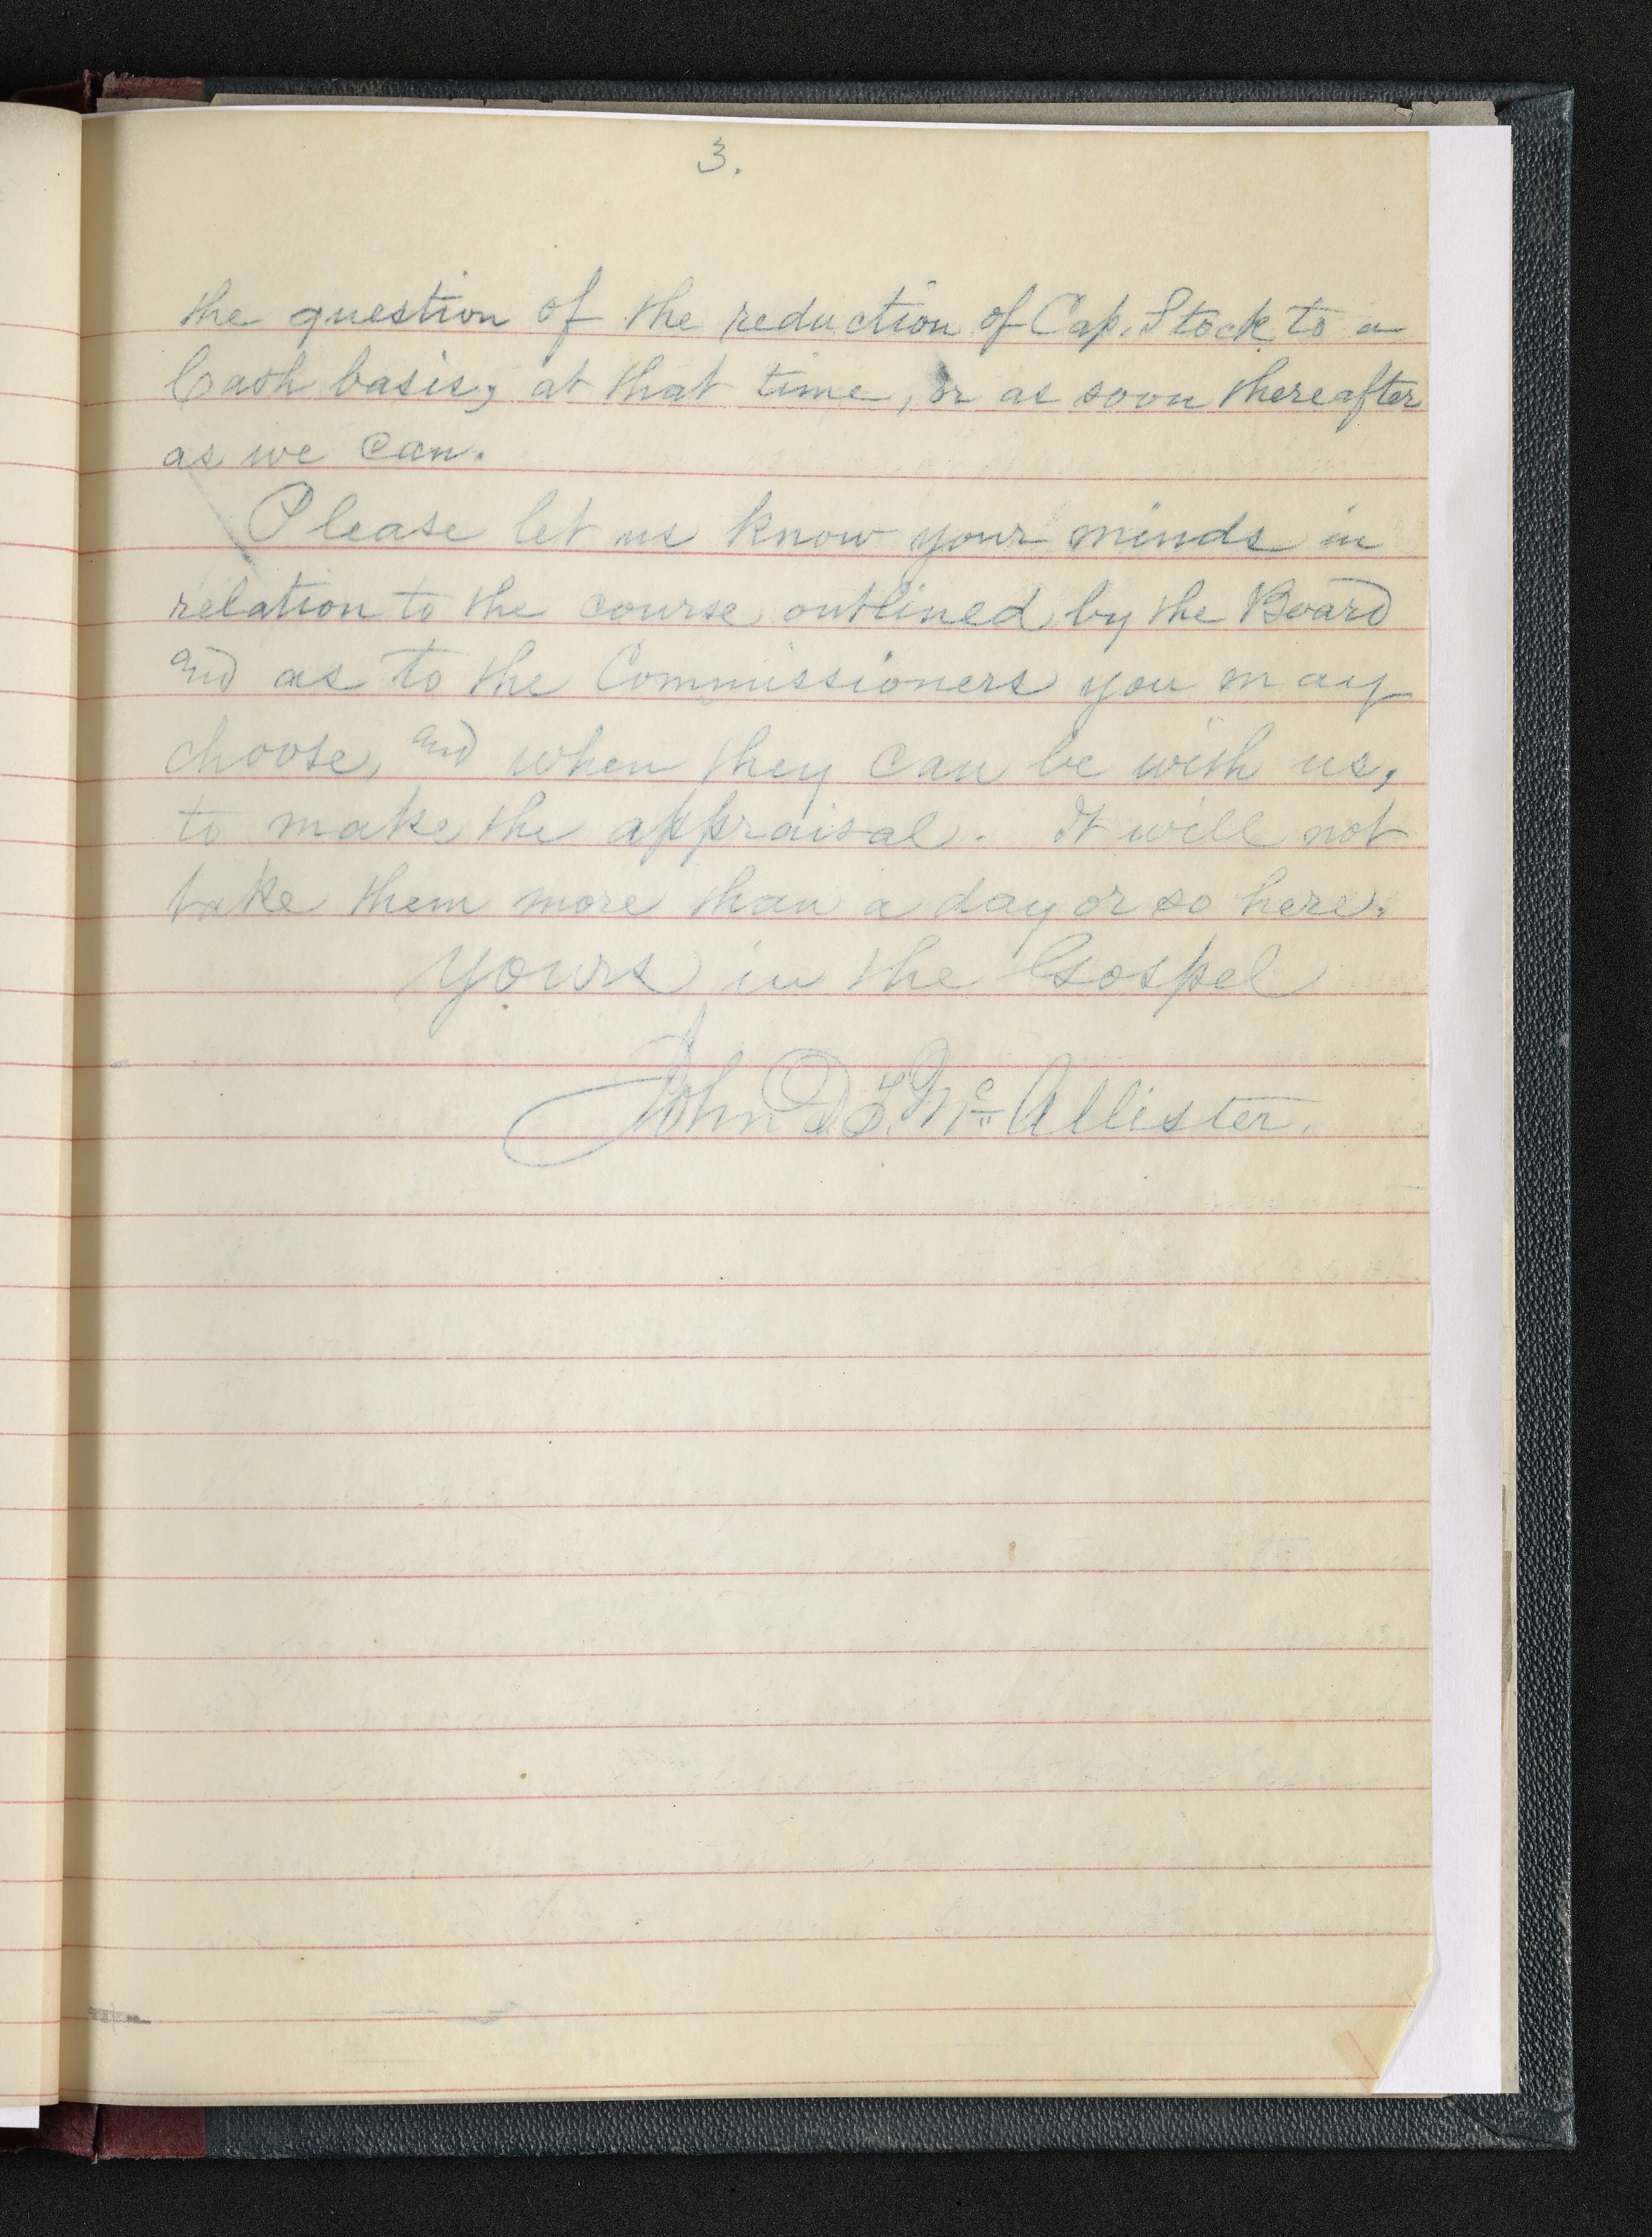 3.
the question of the reduction of Cap. Stock to a
Cash basis, at that time, or as soon thereafter
as we can.
Please let us know your minds in
relation to the course outlined by the Board
and as to the Commissioners you may
choose, and when they can be with us,
to make the appraisal. It will not
take them more than a day or so here.
Yours in the Gospel
John D. T. McAllister.